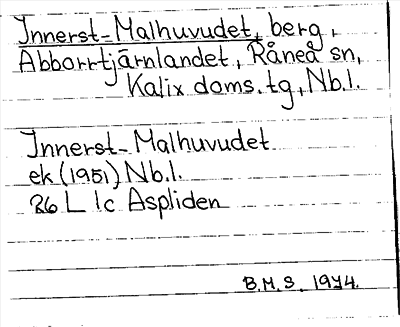 Innerst-Malhuvudet, berg,
Abborrtjärnlandet, Råneå sn,
Kalix doms.tg, Nb.l.
Innerst-Malhuvudet
ek (1951) Nb.l.
26 L 1c Aspliden
B.M.S. 1974.